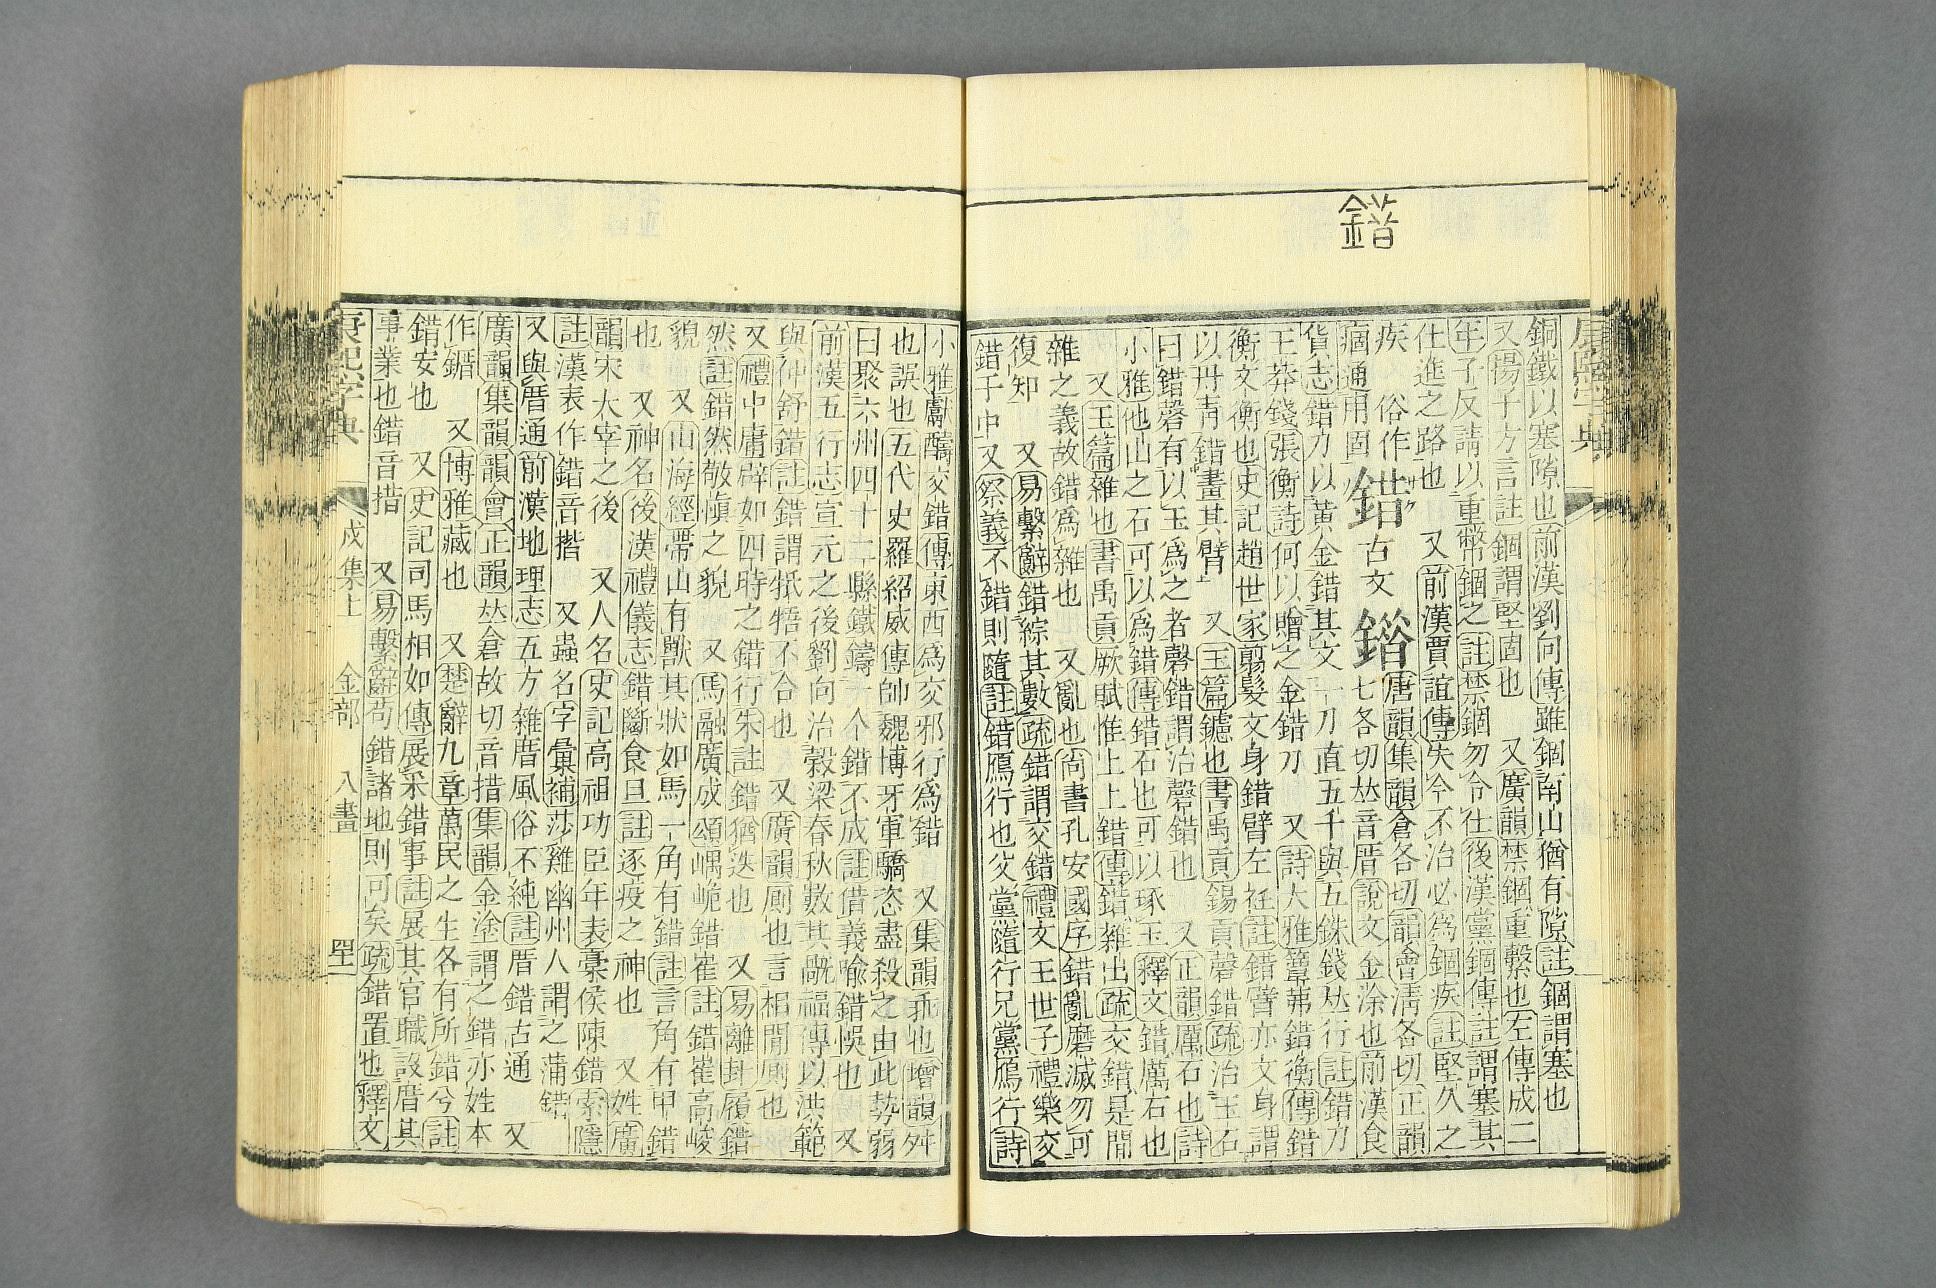 錯
銅鐵以塞隙也前漢劉向傳雖錮南山猶有隙註錮謂塞也
又揚子方言註錮謂堅固也 又廣韻禁錮重繫也左傳成二
年子反請以重幣錮之註禁錮勿令仕後漢黨錮傳註謂塞其
仕進之路也 又前漢賈誼傳失今不治必爲錮疾註堅久之
疾 又俗作
痼通用固
錯古文䥘唐韻集韻倉各切韻會淸各切正韻
七各切𠀤音厝說文金涂也前漢食
貨志錯刀以黃金錯其文一刀直五千與五銖錢𠀤行註錯刀
王莽錢張衡詩何以贈之金錯刀 又詩大雅簟茀錯衡傳錯
衡文衡也史記趙世家翦髮文身錯臂左衽註錯臂亦文身謂
以丹靑錯畫其臂 又玉篇鑢也書禹貢錫貢磬錯疏治玉石
曰錯磬有以玉爲之者磬錯謂治磬錯也 又正韻厲石也詩
小雅他山之石可以爲錯傳錯石也可以琢玉釋文錯厲石也
又玉篇雜也書禹貢厥賦惟上上錯傳錯雜出疏交錯是閒
雜之義故錯爲雜也 又亂也尙書孔安國序錯亂磨滅勿可
復知 又易繫辭錯綜其數疏錯謂交錯禮文王世子禮樂交
錯于中又祭義不錯則隨註錯鴈行也父黨隨行兄黨鴈行詩
小雅獻醻交錯傳東西爲交邪行爲錯 又集韻乖也增韻舛
也誤也五代史羅紹威傳帥魏博牙軍驕恣盡殺之由此勢弱
曰聚六州四十三縣鐵鑄一个錯不成註借義喩錯悞也 又
前漢五行志宣元之後劉向治穀梁春秋數其旤福傳以洪範
與仲舒錯註錯謂牴牾不合也 又廣韻厠也言相閒厠也
又禮中庸辟如四時之錯行朱註錯猶迭也 又易離卦履錯
然註錯然敬愼之貌 又馬融廣成頌嵎峗錯崔註錯崔高峻
貌 又山海經帶山有獸其狀如馬一角有錯註言角有甲錯
也 又神名後漢禮儀志錯斷食巨註逐疫之神也 又姓廣
韻宋大宰之後 又人名史記高祖功臣年表槀侯陳錯索隱
註漢表作錯音揩 又蟲名字彙補莎雞幽州人謂之蒲錯
又與厝通前漢地理志五方雜厝風俗不純註厝錯古通 又
廣韻集韻韻會正韻𠀤倉故切音措集韻金塗謂之錯亦姓本
作䥘 又博雅藏也 又楚辭九章萬民之生各有所錯兮註
錯安也 又史記司馬相如傳展采錯事註展其官職設厝其
事業也錯音措 又易繫辭苟錯諸地則可矣疏錯置也釋文
康熙字典
戌集上
金部
八畫